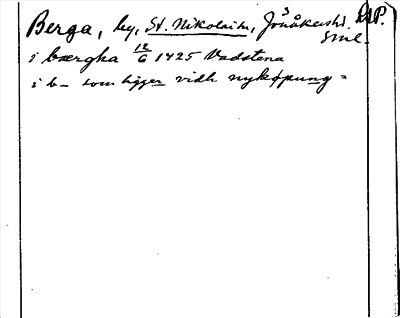 Berga, by, St. Nikolai sn, Jönåkershd. RAP.
Sml.
i bærgha 12/6 1425 Vadstena
i b– som ligger vidh nyköpung =